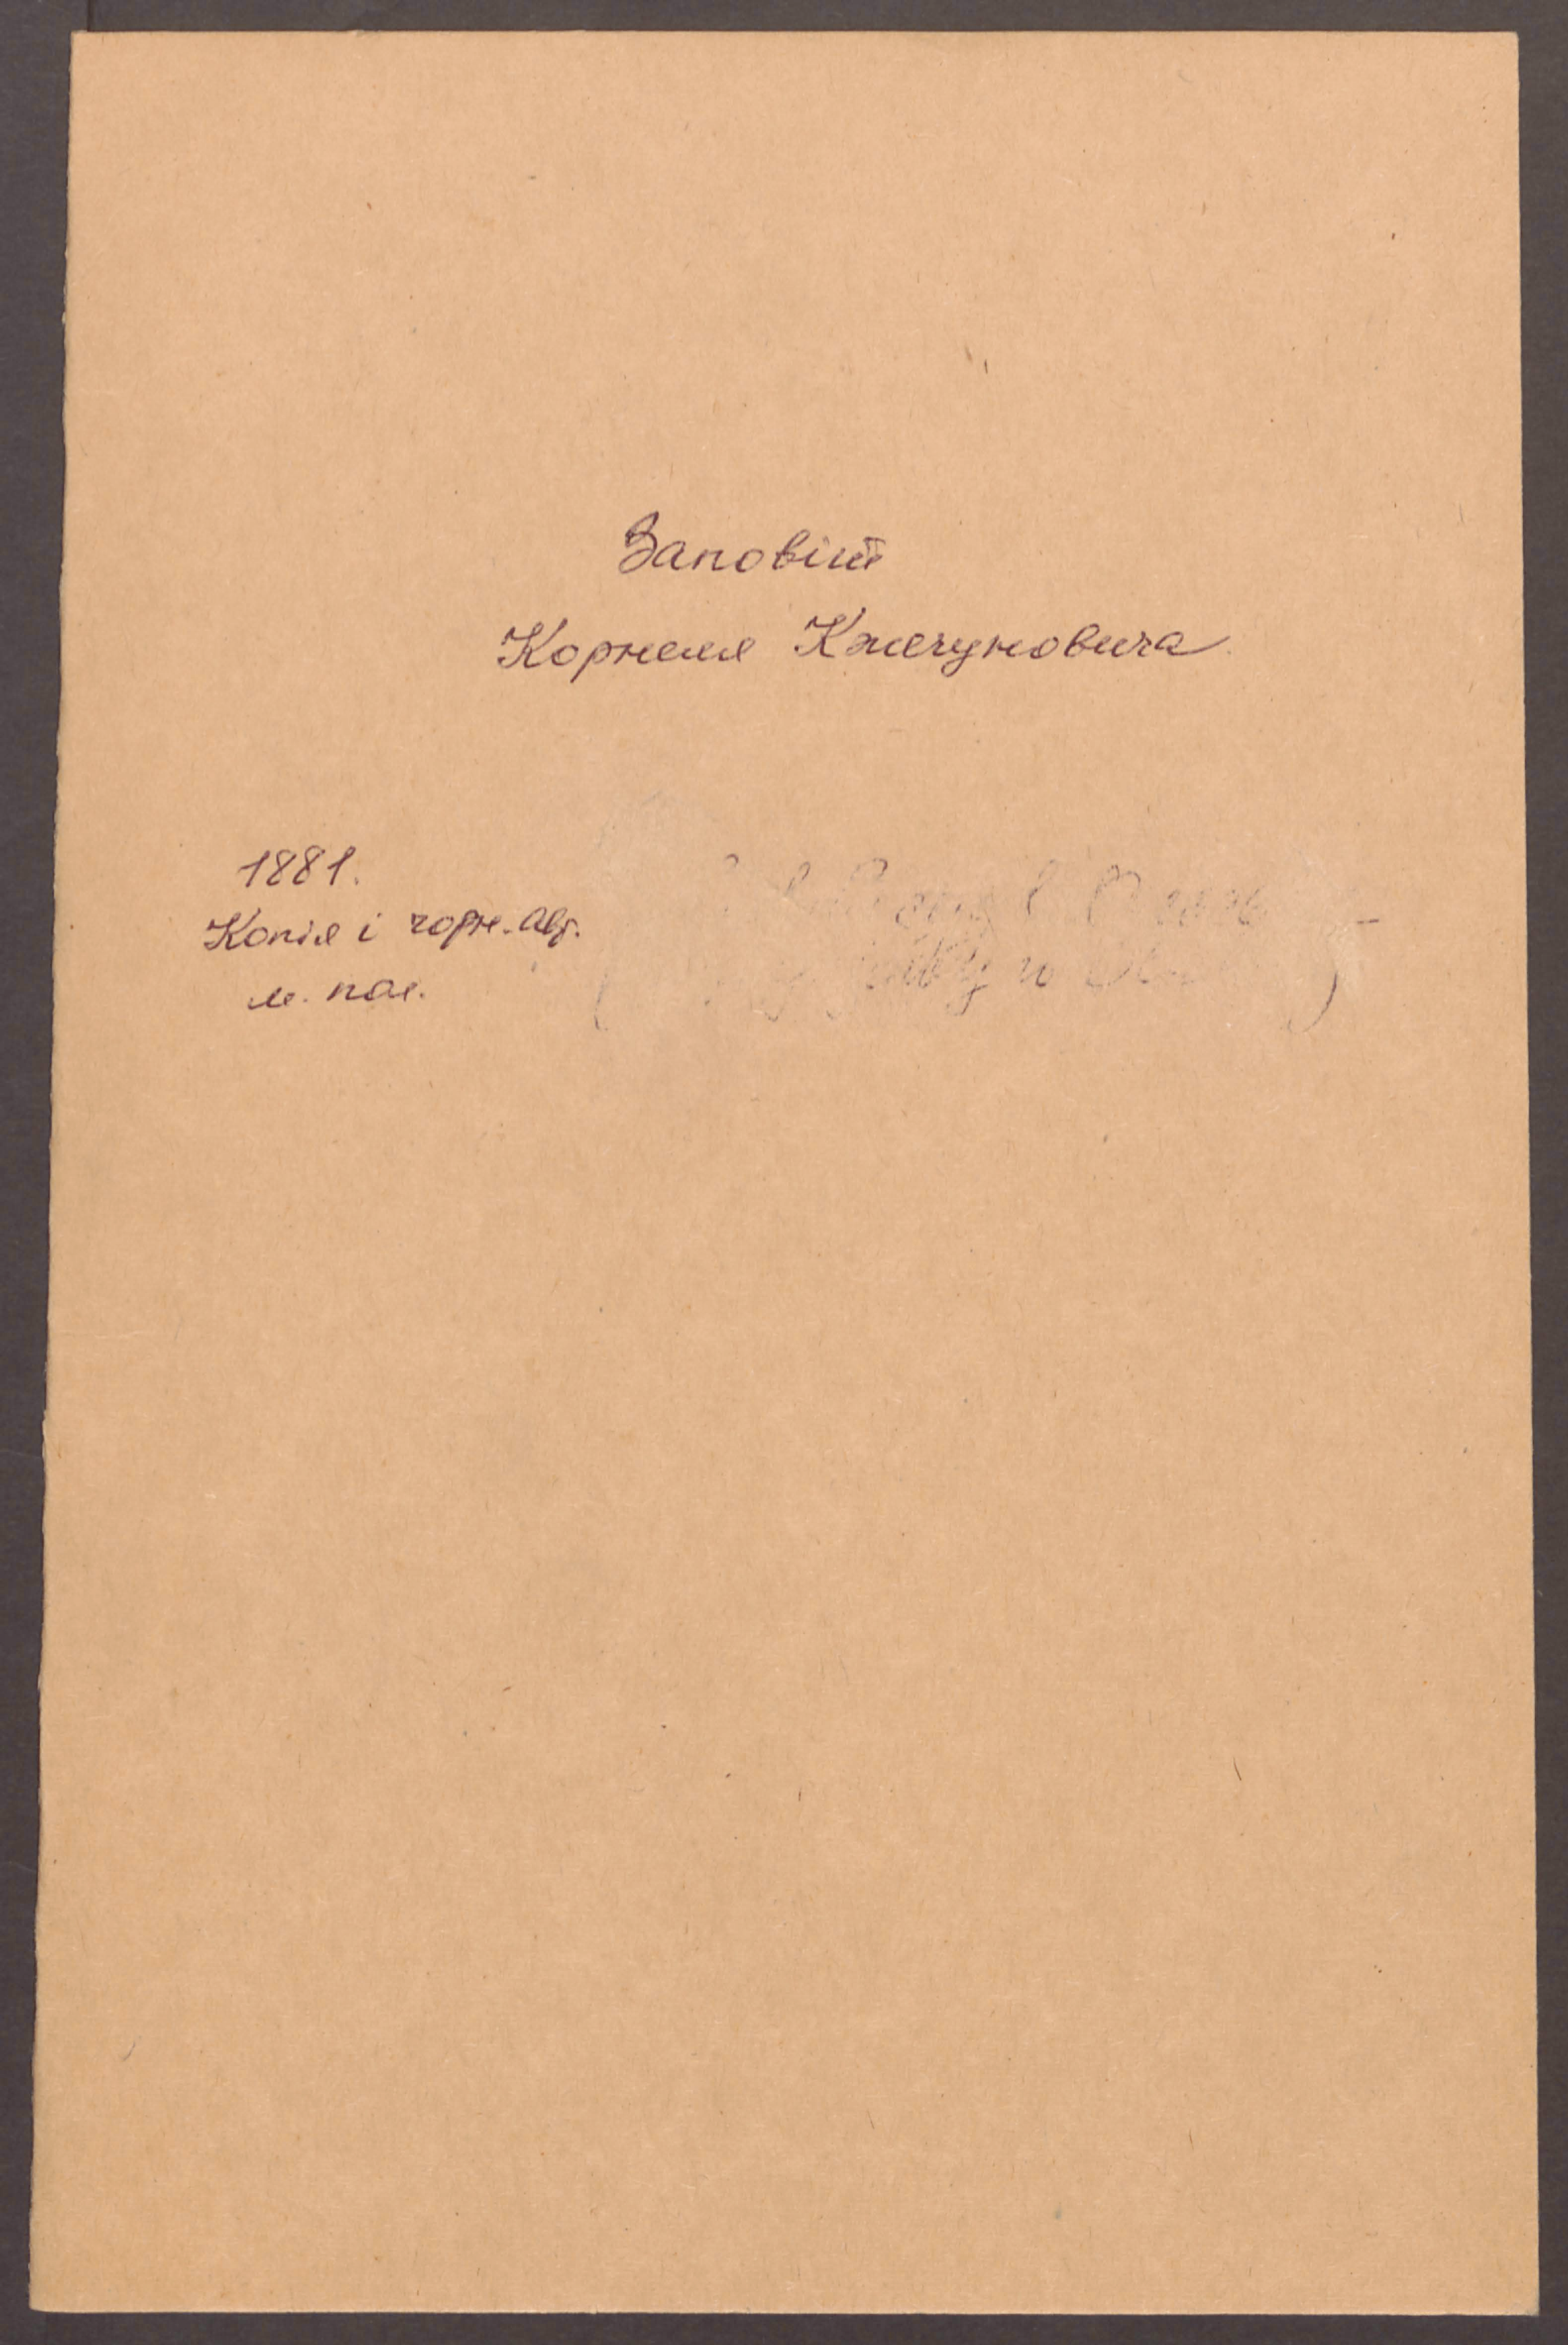 Заповіт
Корнеля Кжечуновича
1881.
Копія і чорн. авт.
м. пол.